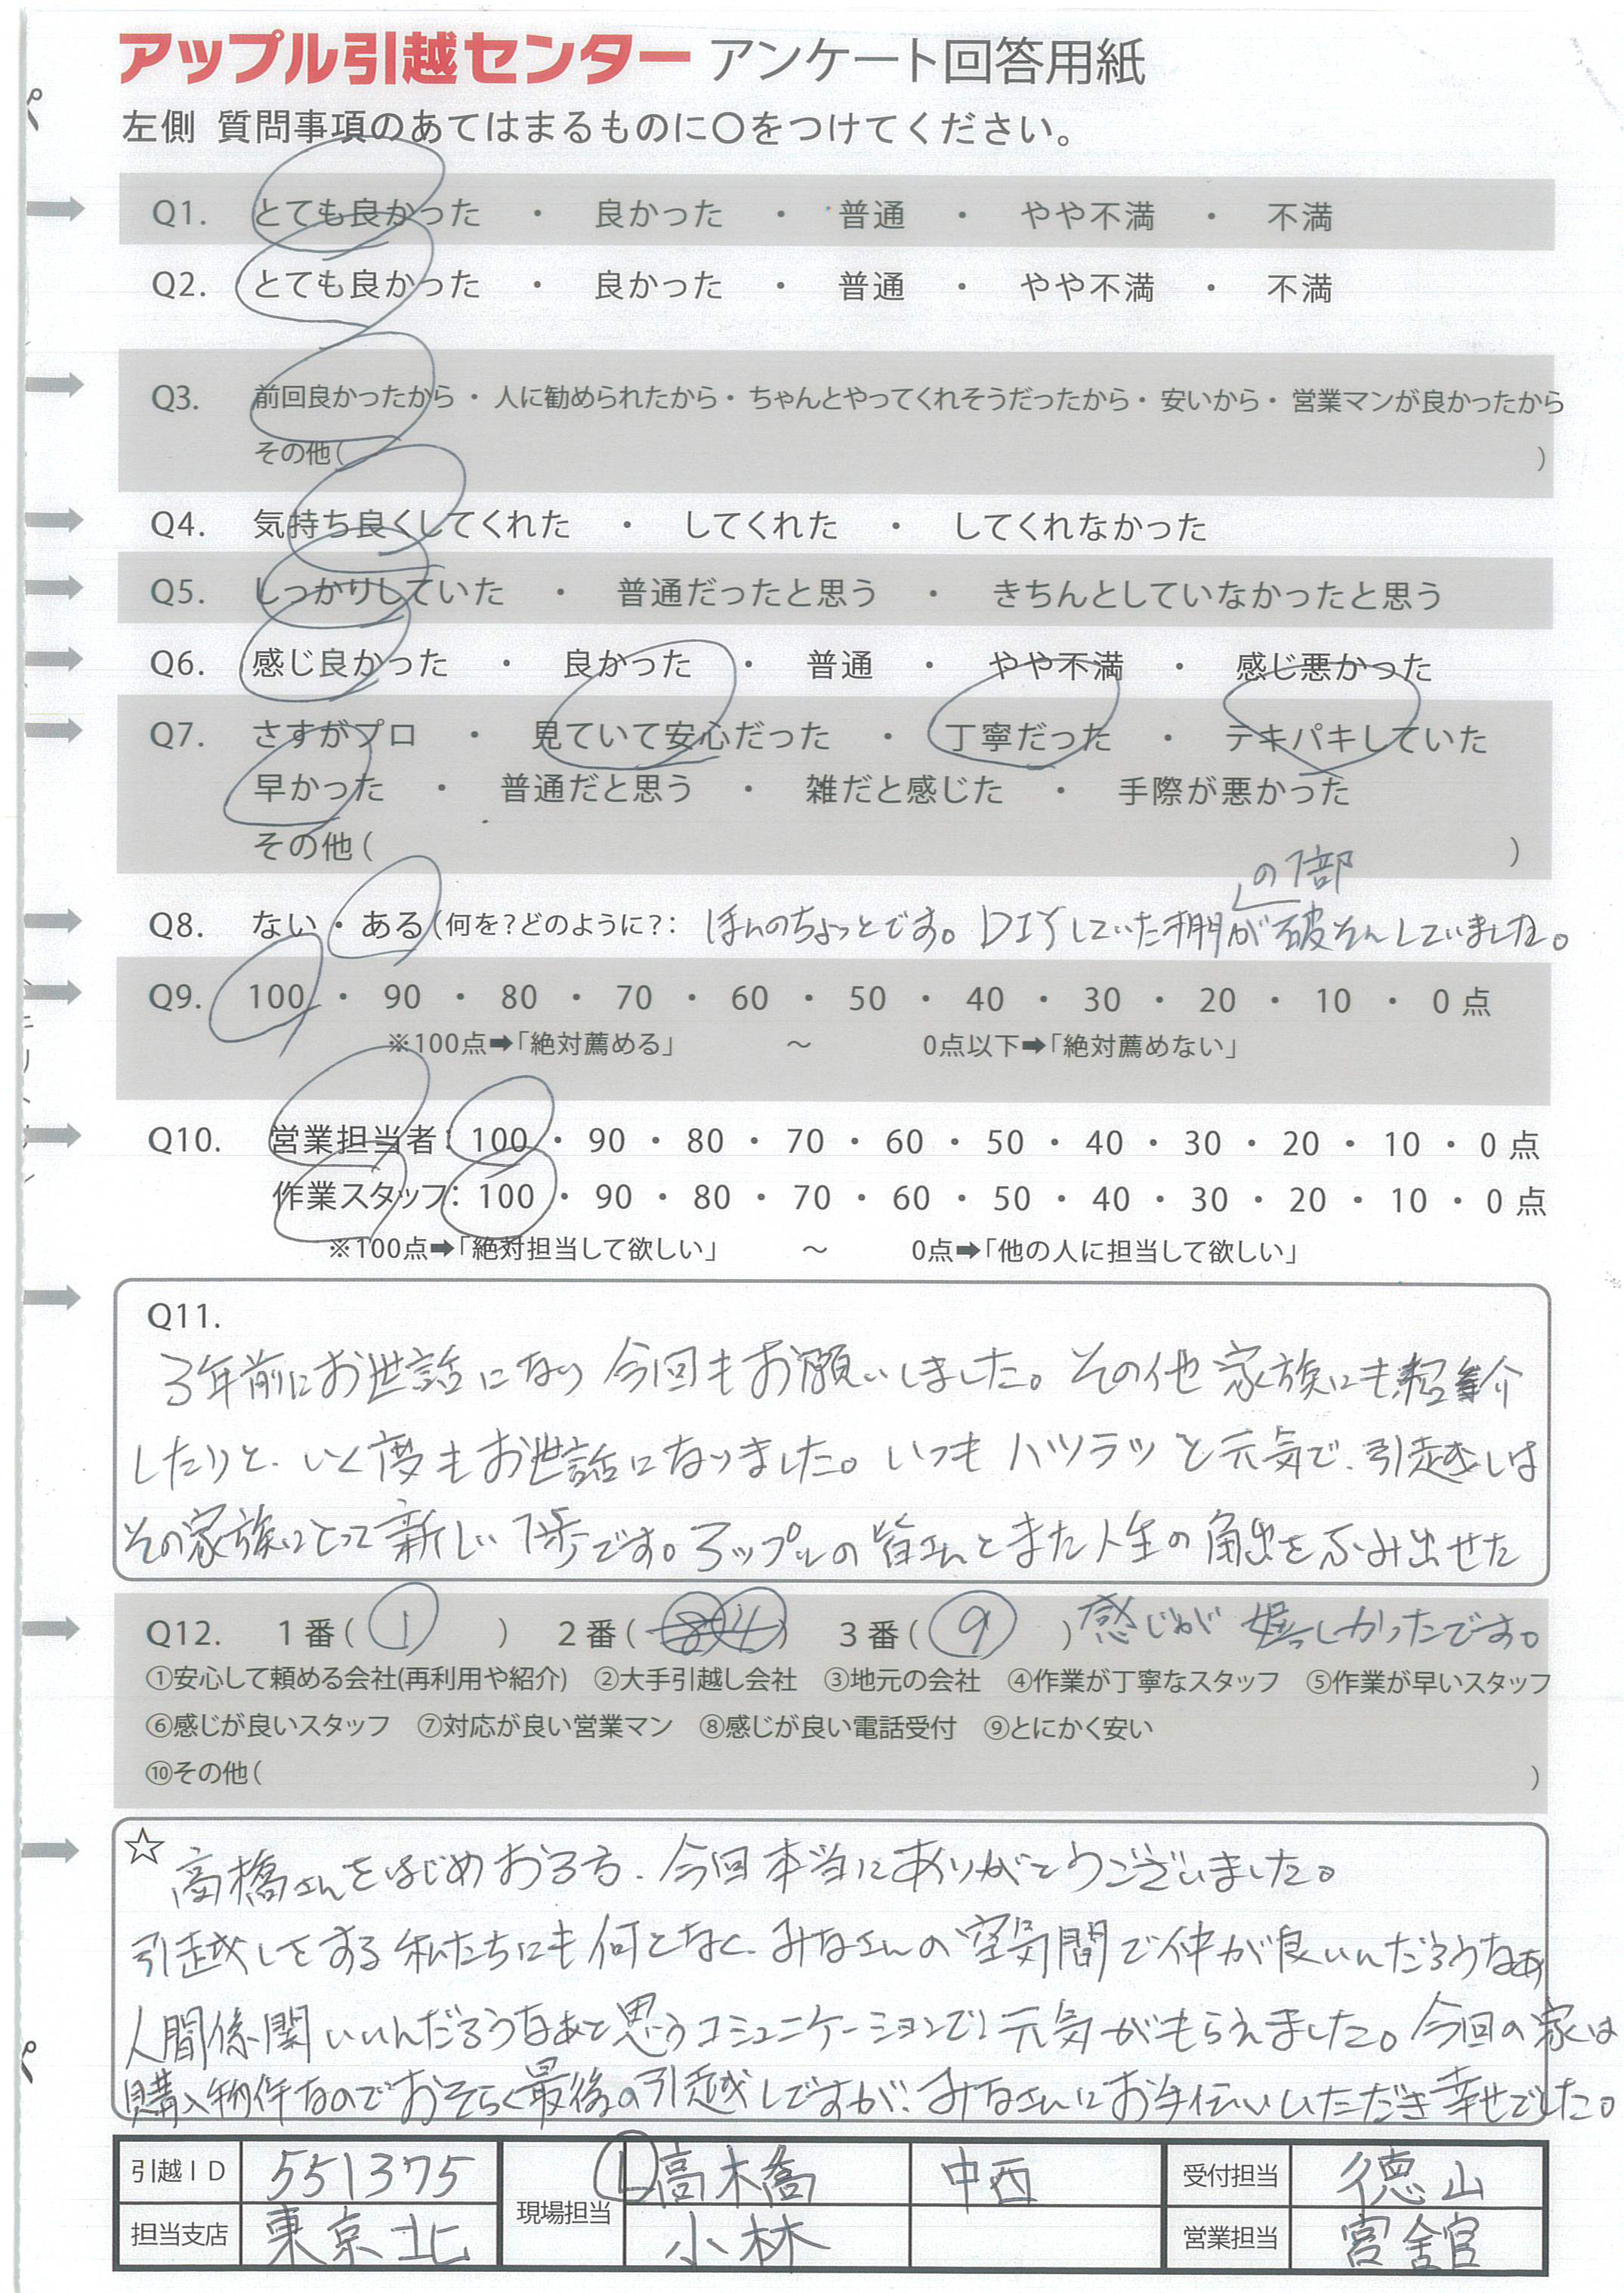 アップル引越センター アンケート回答用紙
左側 質問事項のあてはまるものに〇をつけてください。
Q1. とても良かった ・ 良かった ・ 普通 ・ やや不満 ・ 不満
Q2. とても良かった ・ 良かった ・ 普通 ・ やや不満 ・ 不満
Q3. 前回良かったから・ 人に勧められたから・ ちゃんとやってくれそうだったから・ 安いから・ 営業マンが良かったから
その他( )
Q4. 気持ち良くしてくれた ・ してくれた ・ してくれなかった
Q5. しっかりしていた ・ 普通だったと思う ・ きちんとしていなかったと思う
Q6. 感じ良かった ・ 良かった ・ 普通 ・ やや不満 ・ 感じ悪かった
Q7. さすがプロ ・ 見ていて安心だった ・ 丁寧だった ・ テキパキしていた
早かった ・ 普通だと思う ・ 雑だと感じた ・ 手際が悪かった
その他( )
の1部
Q8. ない・ある(何を?どのように?: ほんのちょっとです。DIYしていた棚が破そんしていました。
Q9. 100 ・ 90 ・ 80 ・ 70 ・ 60 ・ 50 ・ 40 ・ 30 ・ 20 ・ 10 ・ 0 点
※100点➡「絶対薦める」 ～ 0点以下➡「絶対薦めない」
Q10. 営業担当者: 100 ・ 90 ・ 80 ・ 70 ・ 60 ・ 50 ・ 40 ・ 30 ・ 20 ・ 10 ・ 0 点
作業スタッフ: 100 ・ 90 ・ 80 ・ 70 ・ 60 ・ 50 ・ 40 ・ 30 ・ 20 ・ 10 ・ 0 点
※100点➡「絶対担当して欲しい」 ～ 0点➡「他の人に担当して欲しい」
Q11.
3年前にお世話になり 今回もお願いしました。その他 家族にも紹介
したりと、いく度もお世話になりました。いつも ハツラツと元気で、引越しは
その家族にとって新しい1歩です。アップルの皆さんとまた人生の角出をふみ出せた
Q12. 1番( ① ) 2番( ④ ) 3番( ⑨ ) 感じがが 嬉しかったです。
①安心して頼める会社(再利用や紹介) ②大手引越し会社 ③地元の会社 ④作業が丁寧なスタッフ ⑤作業が早いスタッフ
⑥感じが良いスタッフ ⑦対応が良い営業マン ⑧感じが良い電話受付 ⑨とにかく安い
⑩その他( )
☆ 高橋さんをはじめお3方、今回本当にありがとうございました。
引越しをする私たちにも何となく、みなさんの空気間で仲が良いんだろうなぁ
人間係関いいんだろうなぁと思うコミュニケーションで元気がもらえました。今回の家は
購入物件なのでおそらく最後の引越しですが、みなさんにお手伝いいただき幸せでした。
引越ID 551375 現場担当 Ⓛ高橋 中西 受付担当 徳山
担当支店 東京北 小林 営業担当 宮舘